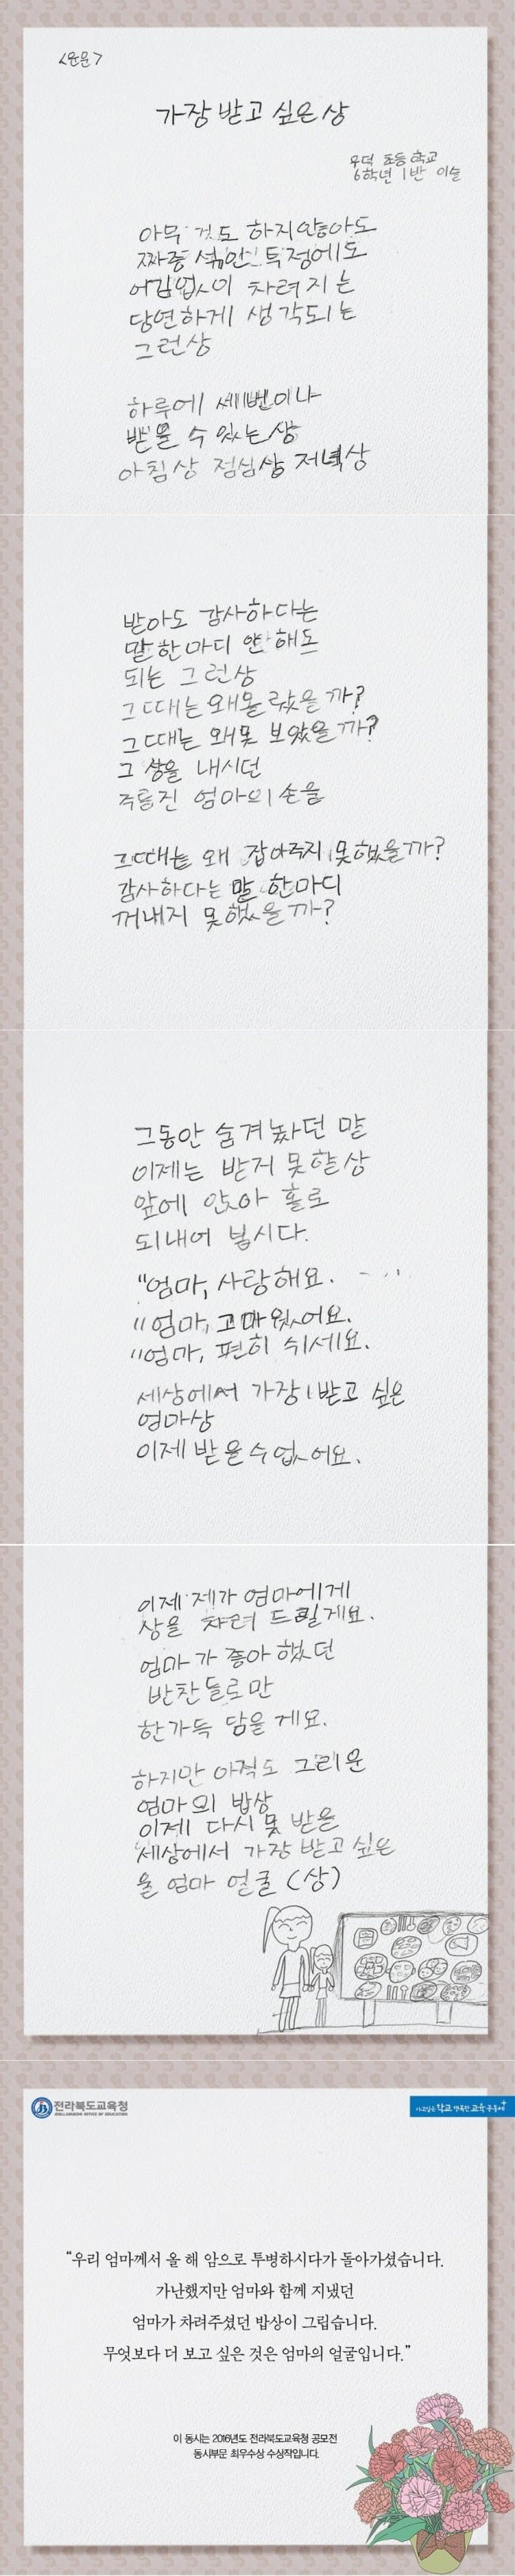 <운문>
가장 받고 싶은 상
우덕 초등학교
6학년 1반 이슬
아무 것도 하지않아도
짜증 섞인 투정에도
어김없이 차려지는
당연하게 생각되는
그런상
하루에 세번이나
받을 수 있는상
아침상 점심상 저녁상
받아도 감사하다는
말 한마디 안 해도
되는 그런상
그때는 왜몰랐을까?
그때는 왜못 보았을까?
그 상을 내시던
주름진 엄마의 손을
그때는 왜 잡아주지 못했을까?
감사하다는 말 한마디
꺼내지 못했을까?
그동안 숨겨놨던 말
이제는 받거 못할상
앞에 앉아 홀로
되내어 봅시다.
"엄마, 사랑해요.
"엄마, 고마웠어요.
"엄마, 편히 쉬세요.
세상에서 가장 받고 싶은
엄마상
이제 받을수없어요.
이제 제가 엄마에게
상을 차려 드릴게요.
엄마가 좋아했던
반찬들로만
한가득 담을게요.
하지만 아직도 그리운
엄마의 밥상
이제 다시 못 받을
세상에서 가장 받고 싶은
울 엄마 얼굴 (상)
전라북도교육청
JEOLLABUKDO OFFICE OF EDUCATION
가고싶은 학교 행복한 교육공동체
"우리 엄마께서 올 해 암으로 투병하시다가 돌아가셨습니다.
가난했지만 엄마와 함께 지냈던
엄마가 차려주셨던 밥상이 그립습니다.
무엇보다 더 보고 싶은 것은 엄마의 얼굴입니다."
이 동시는 2016년도 전라북도교육청 공모전
동시부문 최우수상 수상작입니다.